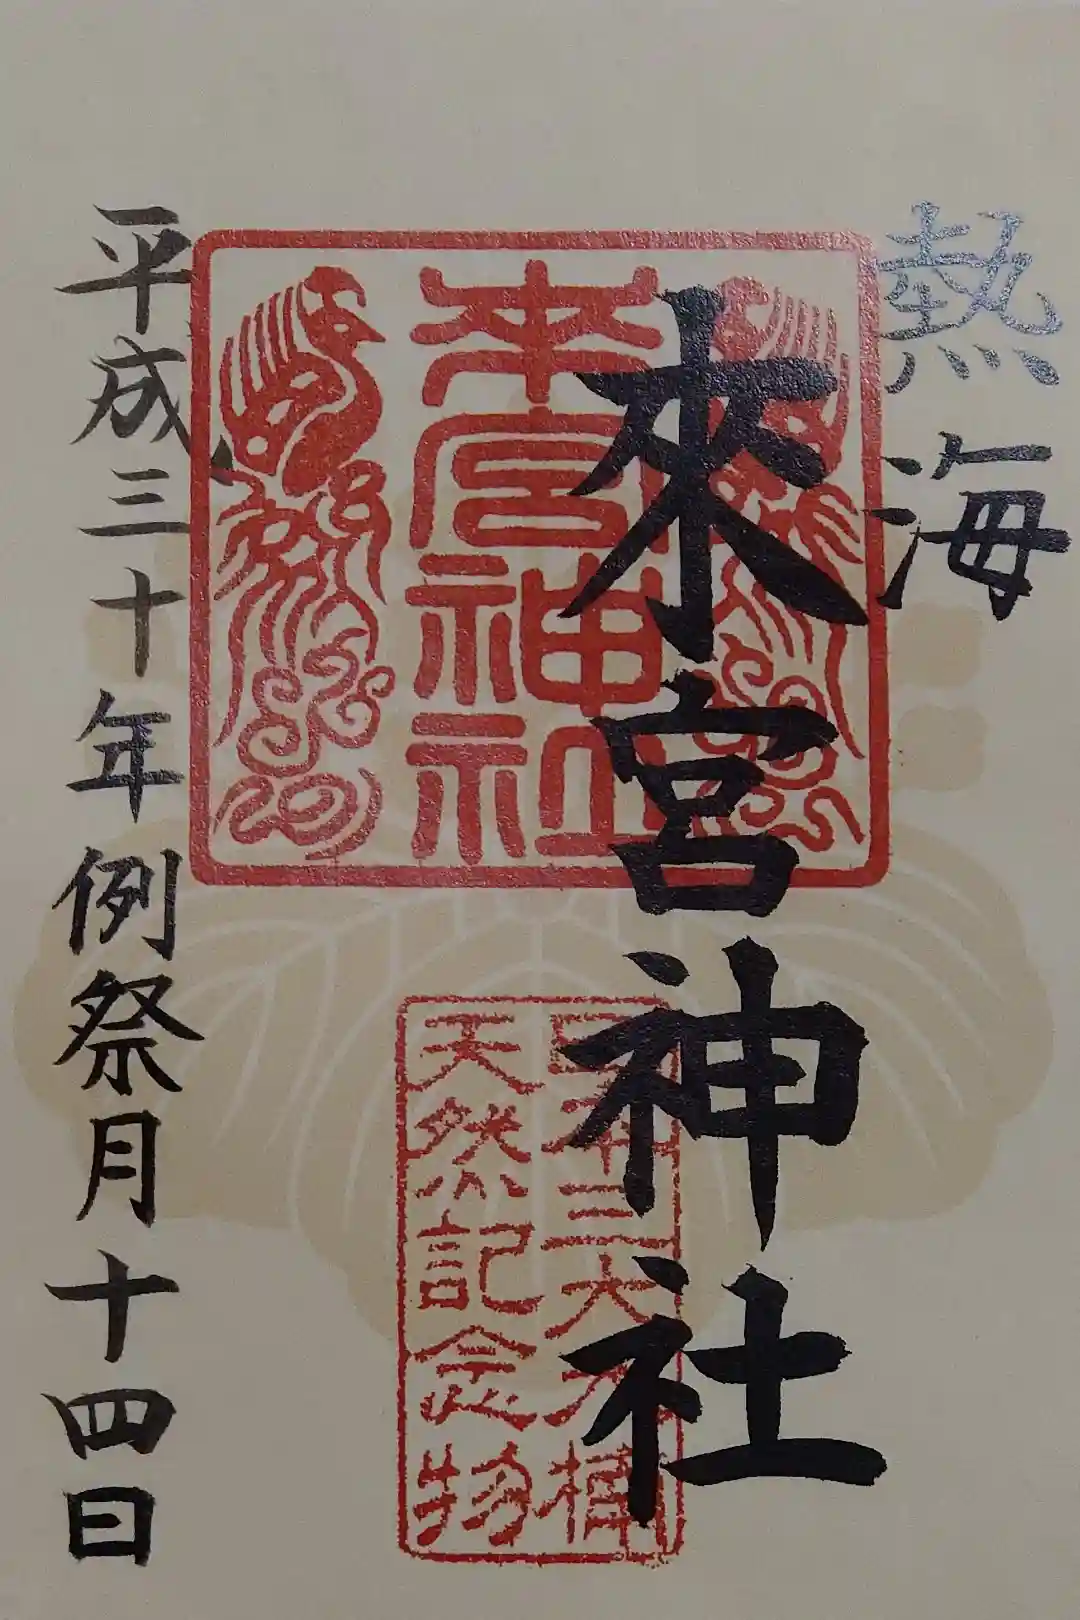 熱海
來宮神社
來宮神社
日本三大大楠
天然記念物
平成三十年例祭月十四日